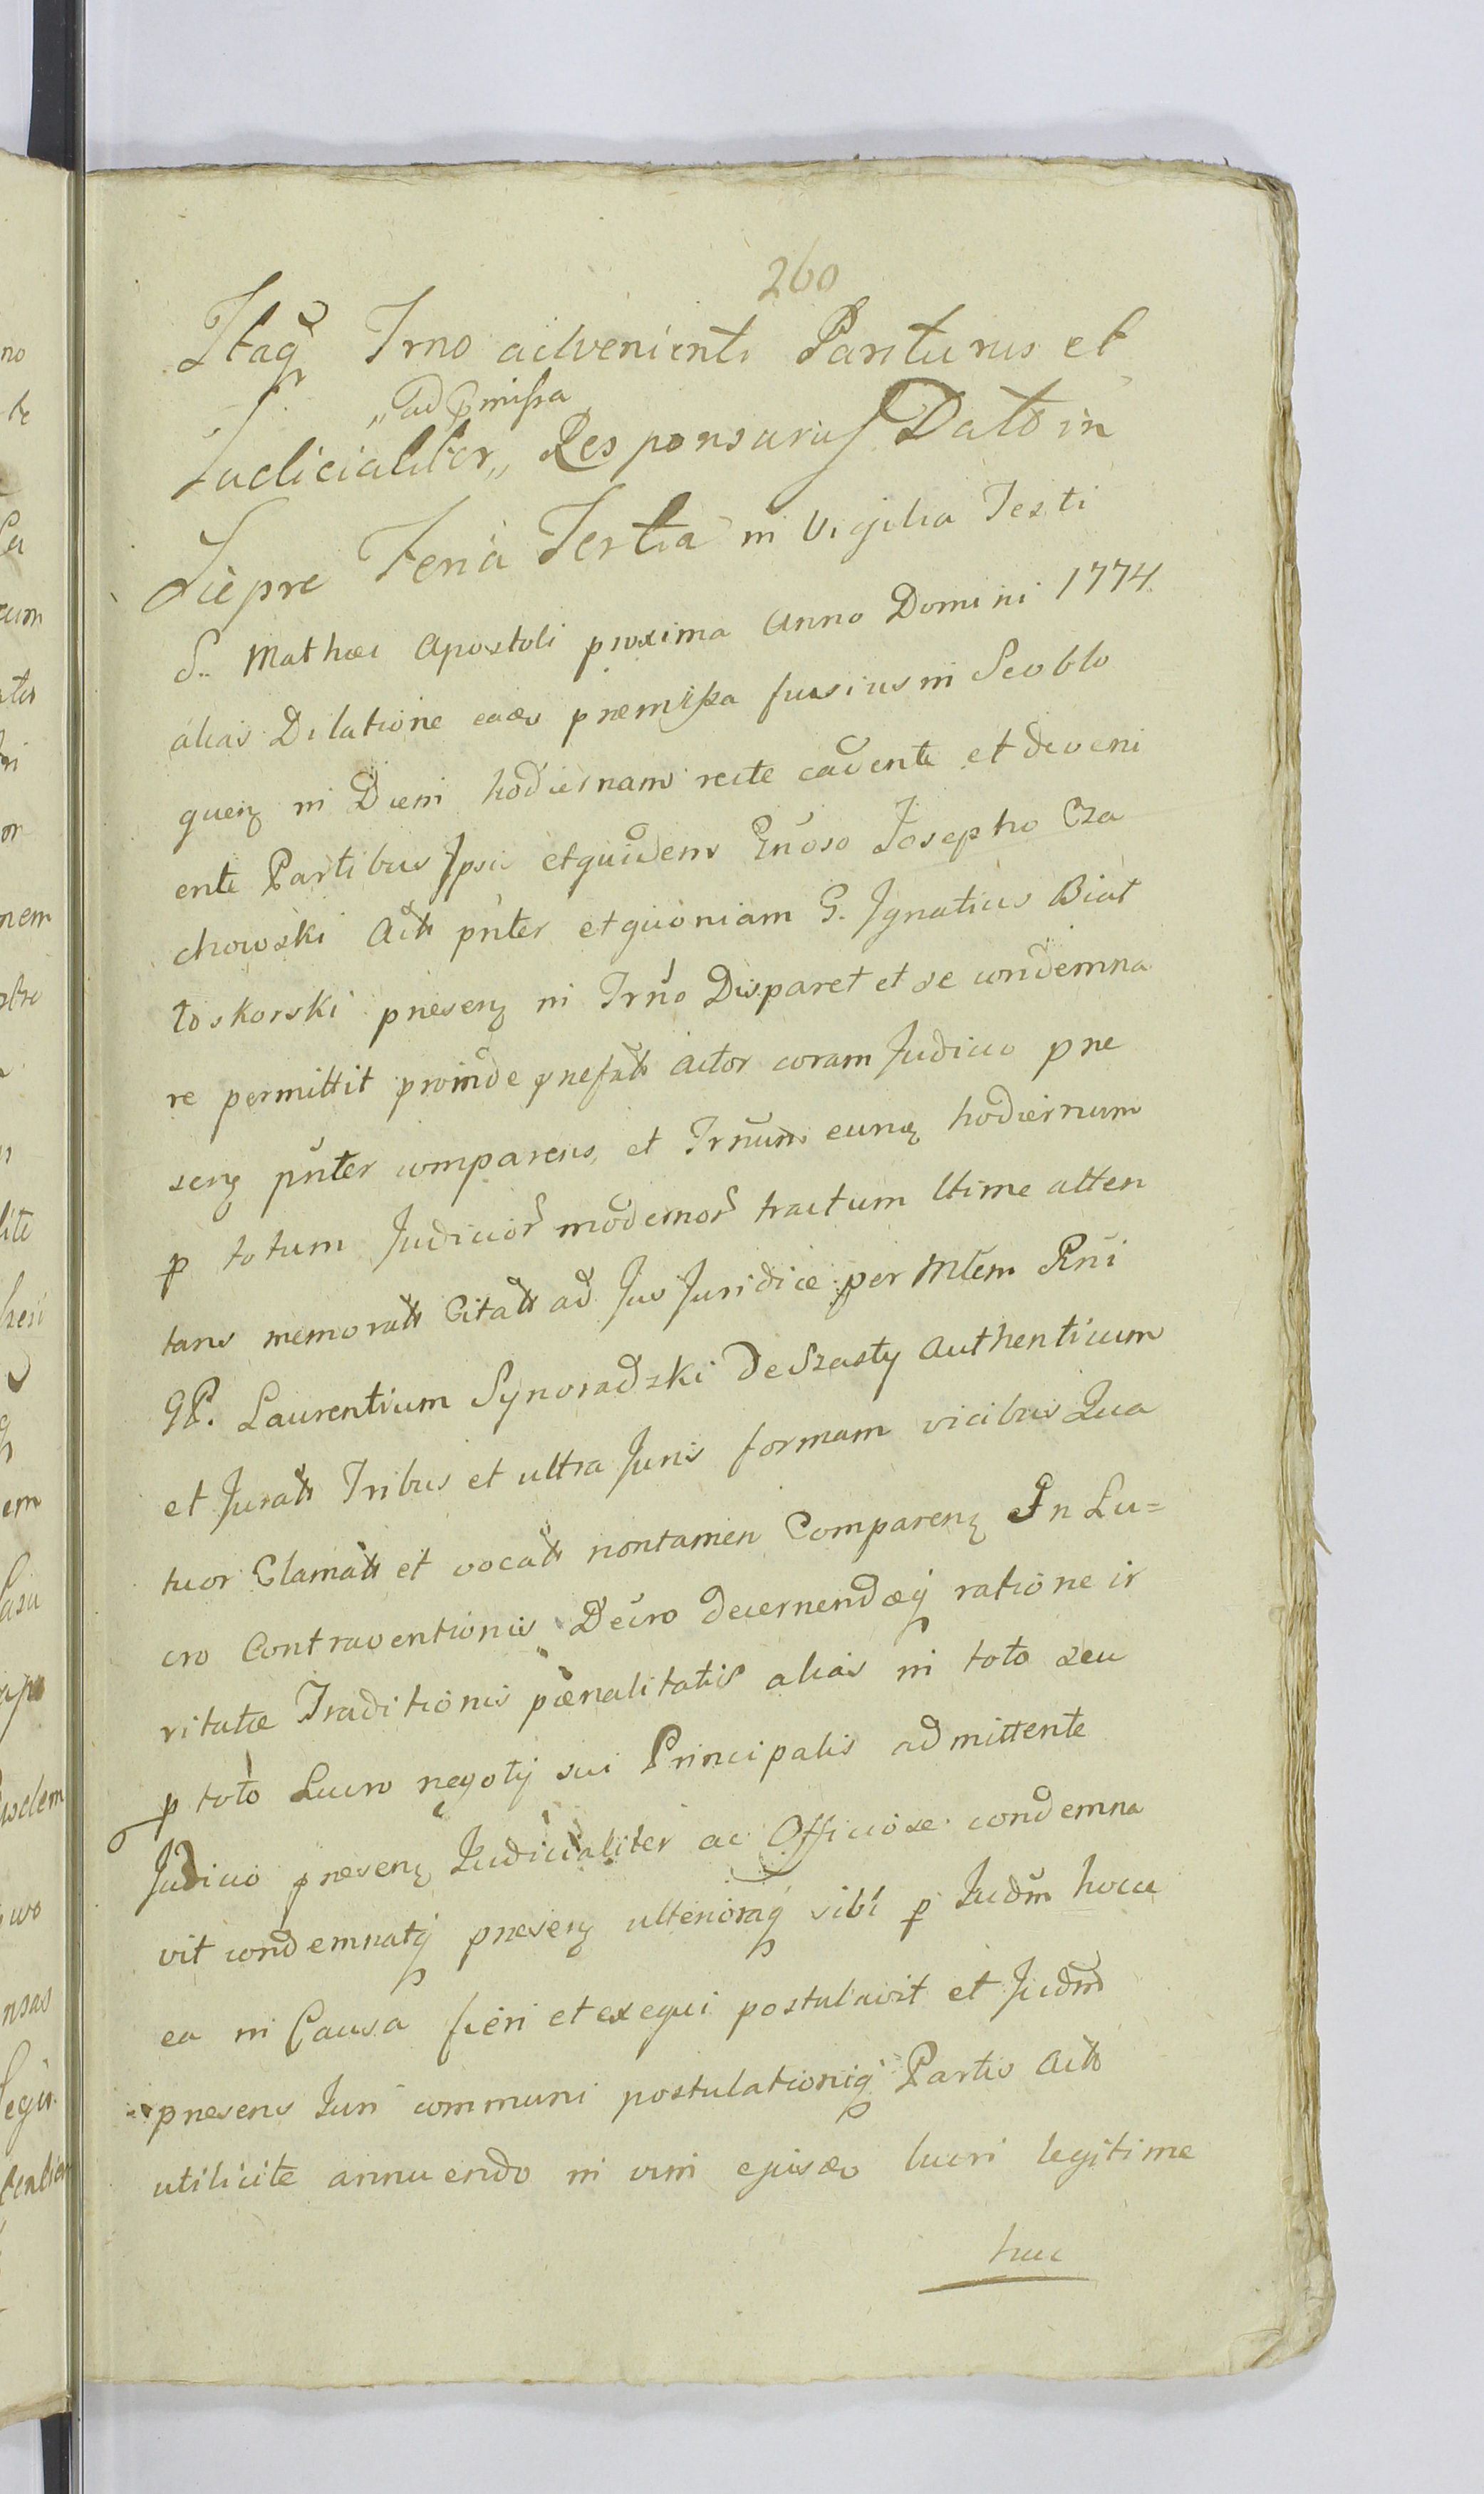 260
Itaq Trno advenienti Pariturus et
„ad pmissa
Judicialiter„ Responsurus Dato in
Siepre Feria Tertia in Vigilia Festi
S. Mathæi Apostoli proxima Anno Domini 1774.
alias Dilatione eaæ præmissa fusius in Scoblo
quenz in Diem hodiernam recte cadente et deveni
ente Partibus Ipsis etquidem Gnoso Josepho Cza
chowski Actt pnter etquoniam G. Ignatius Biat
toskorski presenz in Trno Disparet et se condemna
re permittit proinde prefatt Actor coram Judicio pre
senz pnter comparens, et Trnum eunz hodiernum
p totum Judicior modernor tractum ltime atten
tans memoratt Citatt ad Jus Juridice per Mtem Rni
GP. Laurentium Synoradzki De Szasty Authenticum
et Juratt Tribus et ultra Juris formam vicibus Qua
tuor Clamatt et vocatt nontamen Comparenz In Lu=
cro Contraventionis Decro decernendæq ratione ir
ritatæ Traditionis pænalitatis alias in toto seu
p toto Lucro negotij sui Principalis admittente
Judicio presenz Judicialiter ac Officiose condemna
vit condemnatq presenz ulterioraq sibi p Judm hocce
ea in Causa fieri et exequi postulavit et Judm
presens Juri communi postulationiq Partis Actt
utilicite annuendo in vim ejusæ lucri legitime
huic